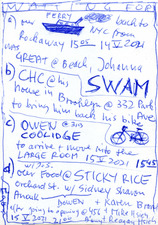 WAITING FOR
FERRY
a) our back to
Rockaway 15 05 14 V 2021 NYC from
was
GREAT @ Beach, Johanna
b) CHC @ his SWAM
house in Brooklyn @ 332 Park Ave
to bring him back his bike
c) OWEN @ 205
COOLIDGE
to arrive & move into the
LARGE ROOM 15 V 2021 1545
d) our Food @ STICKY RICE
Orchard St. w/ Sidney Sharon
OWEN + Karen
After going to opening @ 456 & Mike
15 V 2021 2100